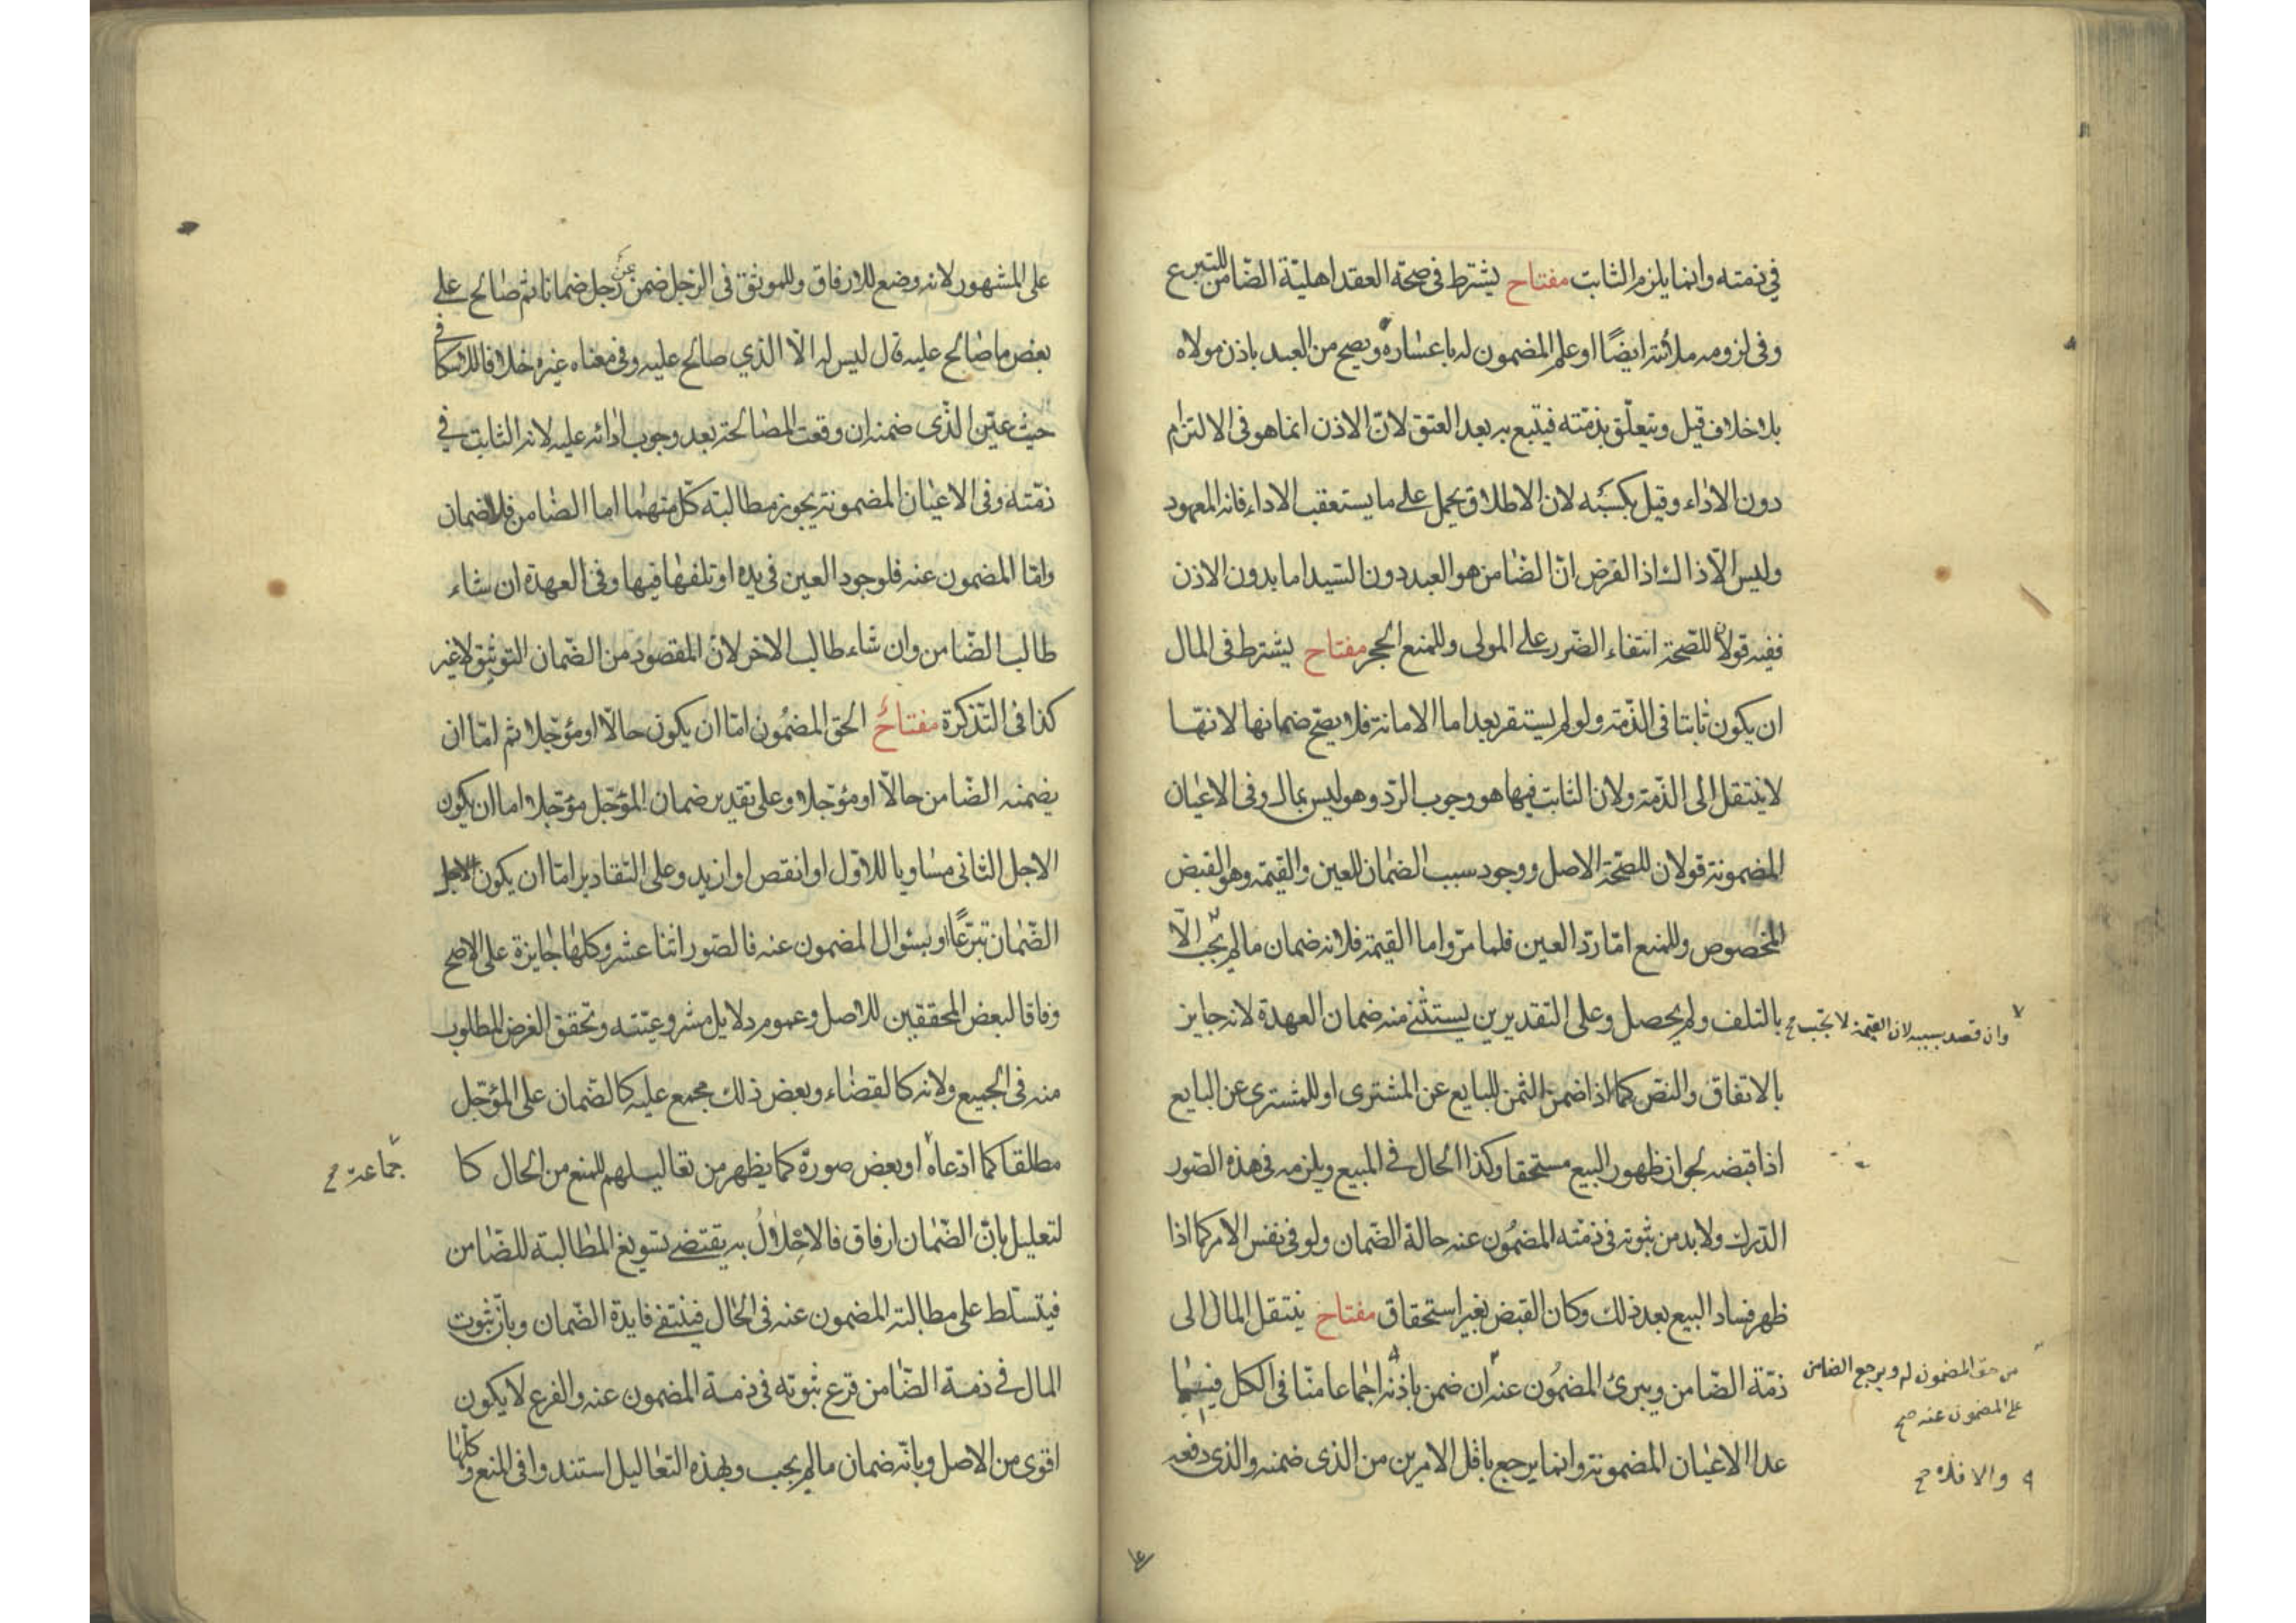 في ذمته وانما يلزم الثابت مفتاح يشترط في صحة العقد اهلية الضامن للتبرع
وفى لزومه ملائته ايضًا او علم المضمون له باعساره ويصح من العبد باذن مولاه
بلا خلاف قيل ويتعلّق بذمّته فيتبع به بعد العتق لانّ الاذن انما هو فى الالتزام
دون الاداء وقيل بكسبه لان الاطلاق يحمل على ما يستعقب الاداء فانه المعهود
وليس الّا ذا اذا الفرض انّ الضامن هو العبد دون السّيد اما بدون الاذن
ففيه قولان للصّحة انتفاء الضّرر على المولى وللمنع الحجر مفتاح يشترط فى المال
ان يكون ثابتا فى الذّمة ولو لم يستقر بعد اما الامانة فلا يصحّ ضمانها لانها
لا ينتقل الى الذّمة ولان الثابت فيها هو وجوب الردّ وهو ليس بمال وفى الاعيان
المضمونة قولان للصّحة الاصل ووجود سبب الضمان للعين والقيمة وهو القبض
المخصوص وللمنع امّا ردّ العين فلما مرّ واما القيمة فلانه ضمان ما لم يجب الّا
بالتلف ولم يحصل وعلى التقديرين يستثنى منه ضمان العهدة لانه جايز
وان قصد بسببه لان القيمة لا تجب صح
بالاتفاق والنصّ كما اذا ضمن الثمن للبايع عن المشترى او للمشترى عن البايع
اذا قبضه لجواز ظهور المبيع مستحقا وكذا الحال فى المبيع ويلزمه فى هذه الصّور
الدّرك ولا بد من ثبوته فى ذمّته المضمُون عنه حالة الضّمان ولو فى نفس الامر كما اذا
ظهر فساد البيع بعد ذلك وكان القبض بغير استحقاق مفتاح ينتقل المال الى
ذمّة الضّامن ويبرئ المضمُون عنه ان ضمن باذنه اجماعا منّا فى الكل فيما
من حق المضمون له ويرجع الضامن
على المضمون عنه صح
عدا الاعيان المضمونة وانما يرجع باقل الامرين من الذى ضمنه والذى دفعه
والا فلا صح
على المشهور لانه وضع للارفاق وللموثق فى الرّجل ضمن عن رجل ضمانا ثم صالح على
بعض ما صالح عليه قال ليس له الّا الذي صالح عليه وفى معناه غيره خلافا للاسكافى
حيث عيّن الذّى ضمنه ان وقعت المصالحة بعد وجوب ادائه عليه لانه الثابت في
ذمّته وفى الاعيان المضمونة يجوز مطالبة كلّ منهما اما الضّامن فللضمان
وامّا المضمون عنه فلوجود العين فى يده او تلفها فيها وفى العهدة ان شاء
طالب الضّامن وان شاء طالب الاخر لانّ المقصود من الضّمان التوثيق لا غير
كذا فى التّذكرة مفتاحٌ الحق المضمُون امّا ان يكون حالّا او مؤجّلا ثم امّا ان
يضمنه الضّامن حالّا او مؤجّلا وعلى تقدير ضمان المؤجّل مؤجّلا اما ان يكون
الاجل الثانى مساويا للاوّل او انقص او ازيد وعلى التقادير امّا ان يكون
الضّمان تبرّعًا او بسئوال المضمون عنه فالصّور اثنا عشر وكلها جايزة على الاصح
وفاقا لبعض المحققين للاصل وعموم دلايل مشروعيّته وتحقق الغرض المطلوب
منه فى الجميع ولانه كالقضاء وبعض ذلك مجمع عليه كالضّمان على المؤجّل
مطلقا كما ادّعاه او بعض صوره كما يظهر من تعاليلهم للمنع من الحال كا
جماعة صح
لتعليل بانّ الضّمان ارفاق فالاخلالُ به يقتضى تسويغ المطالبة للضّامن
فيتسلّط على مطالبة المضمون عنه فى الحال فينتفى فايدة الضّمان وبانّ ثبوت
المال فى ذمة الضّامن فرع ثبوته فى ذمة المضمون عنه والفرع لا يكون
اقوى من الاصل وبانّه ضمان ما لم يجب وبهذه التعاليل استندوا فى المنع وكلّها